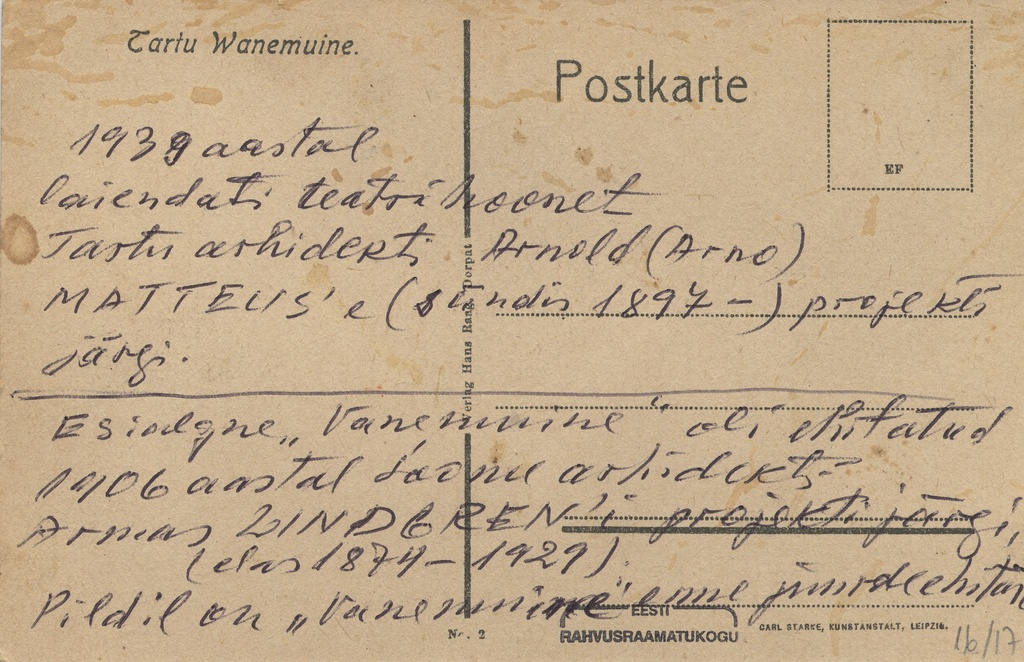 Tartu Wanemuine.
Postkarte
EF
1939 aastal
laiendati teatri hoonet
Tartu arhidekti Arnold (Arno)
MATTEUS'e (sündis 1897 - ) projekti
järgi.
Esialgne „Vanemuine" oli ehitatud
1906 aastal soome arhidekti
Armas LINDGREN'i projekti järgi,
(elas 1874 - 1929).
Pildil on „Vanemuine" enne juurdeehitust
Verlag Hans Raag, Dorpat
No. 2
EESTI
RAHVUSRAAMATUKOGU
CARL STARKE, KUNSTANSTALT, LEIPZIG.
16/17